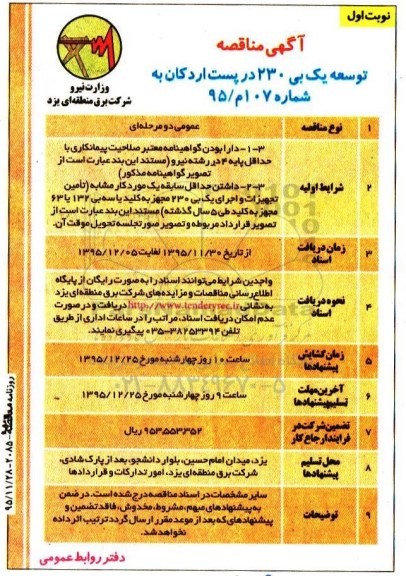 نوبت اول
آگهی مناقصه
توسعه یک بی ۲۳۰ در پست اردکان به
شماره ۱۰۷م/۹۵
وزارت نیرو
شرکت برق منطقه‌ای یزد
۱ نوع مناقصه عمومی دو مرحله‌ای
۲ شرایط اولیه
۱-۳- دارا بودن گواهینامه معتبر صلاحیت پیمانکاری با
حداقل پایه ۴ در رشته نیرو (مستند این بند عبارت است از
تصویر گواهینامه مذکور)
۲-۳- داشتن حداقل سابقه یک مورد کار مشابه (تأمین
تجهیزات و اجرای یک بی ۲۳۰ مجهز به کلید یا سه بی ۱۳۲ یا ۶۳
مجهز به کلید طی ۵ سال گذشته) مستند این بند عبارت است از
تصویر قرارداد مربوطه و تصویر صورتجلسه تحویل موقت آن.
۳ زمان دریافت اسناد از تاریخ ۱۳۹۵/۱۱/۳۰ لغایت ۱۳۹۵/۱۲/۰۵
۴ نحوه دریافت اسناد
واجدین شرایط می‌توانند اسناد را به صورت رایگان از پایگاه
اطلاع رسانی مناقصات و مزایده‌های شرکت برق منطقه‌ای یزد
به نشانی http://www.tenderyrec.ir دریافت و در صورت
عدم امکان دریافت اسناد، مراتب را در ساعات اداری از طریق
تلفن ۳۸۲۵۳۳۹۴-۰۳۵ پیگیری نمایند.
۵ زمان گشایش پیشنهادها ساعت ۱۰ روز چهارشنبه مورخ ۱۳۹۵/۱۲/۲۵
۶ آخرین مهلت تسلیم پیشنهادها ساعت ۹ روز چهارشنبه مورخ ۱۳۹۵/۱۲/۲۵
۰۲۱-۸۸۳۴۹۶۷۰-۵
۷ تضمین شرکت در فرایند ارجاع کار ۹۵۳۵۵۳۳۵۲ ریال
۸ محل تسلیم پیشنهادها
یزد، میدان امام حسین، بلوار دانشجو، بعد از پارک شادی،
شرکت برق منطقه‌ای یزد، امور تدارکات و قراردادها
۹ توضیحات
سایر مشخصات در اسناد مناقصه درج شده است. در ضمن
به پیشنهادهای مبهم، مشروط، مخدوش، فاقد تضمین و
پیشنهادهای که بعد از موعد مقرر ارسال گردد ترتیب اثر داده
نخواهد شد.
دفتر روابط عمومی
روزنامه
۹۵/۱۱/۲۸-۲۰۸۵